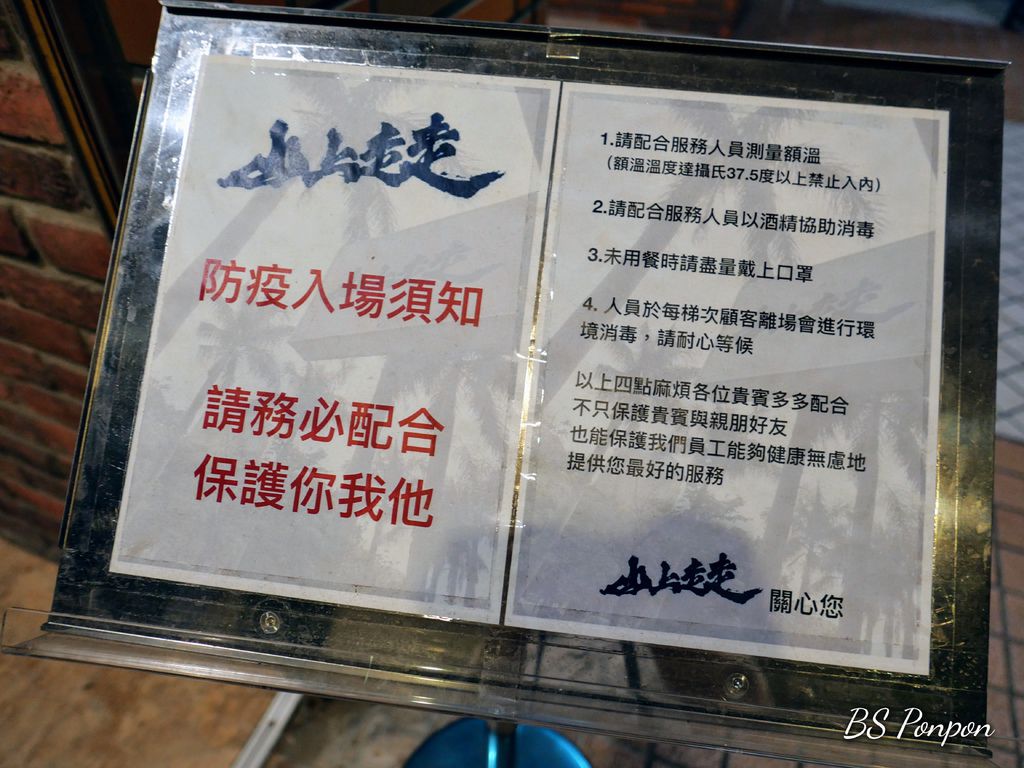 山上走走
防疫入場須知
請務必配合
保護你我他
1.請配合服務人員測量額溫
(額溫溫度達攝氏37.5度以上禁止入內)
2.請配合服務人員以酒精協助消毒
3.未用餐時請盡量戴上口罩
4. 人員於每梯次顧客離場會進行環
境消毒，請耐心等候
以上四點麻煩各位貴賓多多配合
不只保護貴賓與親朋好友
也能保護我們員工能夠健康無慮地
提供您最好的服務
山上走走 關心您
BS Ponpon